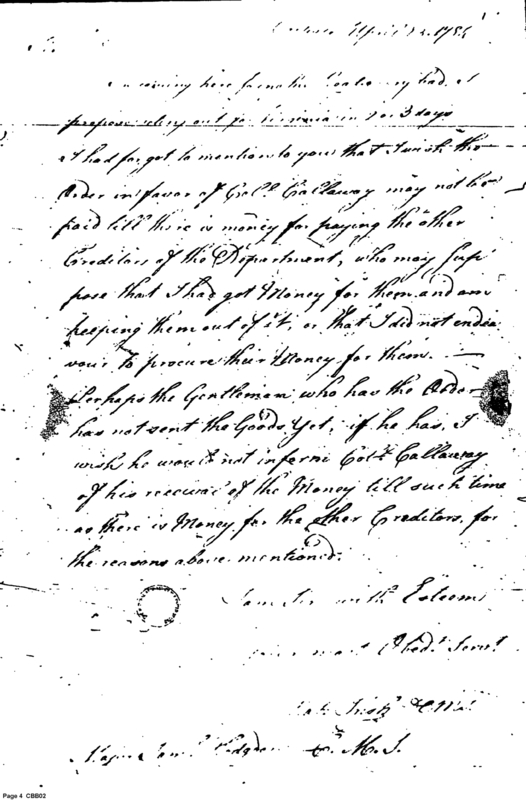 April 1784
coming here
propose out for in 2 or 3 days
I had forgot to mention to you that I wish the
Order in favor of Colo. Callaway may not be
paid till there is money for paying the other
Creditors of the Department, who may sup
pose that I had got Money for them and am
keeping them out of it, or that I did not endea
vour to procure their Money for them. —
Perhaps the Gentleman who has the Order
has not sent the Goods Yet, if he has, I
wish he would not inform Colo. Callaway
of his receival of the Money till such time
as there is Money for the other Creditors, for
the reasons above mentioned.
I am Sir with Esteem
your most Obedt. Servt.
D. M. S.
Page 4 CBB02